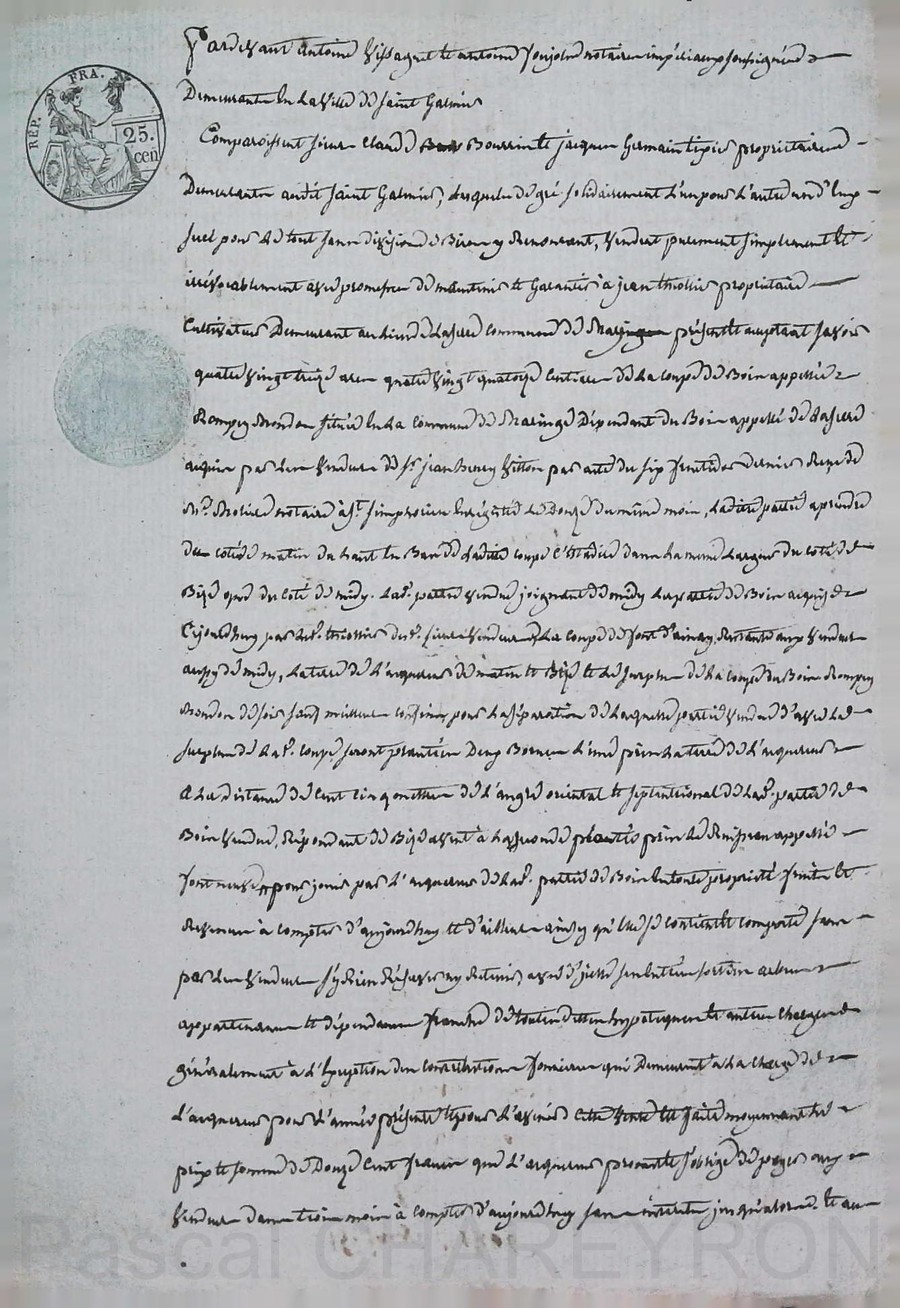 REP. FRA.
25. cen
Pardevant Antoine Vissaguet et antoine notaires impériaux soussignés
Demeurants en la ville de saint Galmier
Comparoissent sieurs Claude Bourrin et jacques Germain propriétaires
Demeurants audit saint Galmier, lesquels de gré solidairement l'un pour l'autre un d'eux
seul pour le tout sans division de Biens y Renonçant, vendent purement simplement et
irrévocablement avec promesse de maintenir et Garantir à jean thiollier propriétaire
Cultivateur Demeurant au lieu de commune de présent et acceptant savoir
quatre vingt treize ares quatre vingt quatorze Centiares de la coupe de Bois appellée
située en la Commune de Maringe Dépendant du Bois appellé de
acquis par les vendeurs de Sr. jean par acte du six dernier Reçu de
Me. notaire à St. Enregistré le Douze du même mois, ladite partie a prendre
du coté de matin du haut en Bas de ladite coupe dans la meme largeur du coté de
Bize que du coté de midy. Lad. partie vendue joignant de midy la partie de Bois acquise
Cejourdhuy par led. thiollier desd. sieurs vendeurs, La coupe de font Restante aux vendeurs
aussy de midy, la terre de l'acquereur de matin et Bize et le surplus de la coupe du Bois
de soir sauf meilleurs confins, pour la séparation de laquelle partie vendue d'avec le
surplus de lad. coupe seront plantées Deux Bornes l'une près la terre de l'acquereur
a la distance de Cent Cinq mettres de l'angle oriental et septentrional de lad. partie de
Bois vendue, de Bize à vent à la seconde près le Ruisseau appellé
font pour jouir par l'acquereur de lad. partie de Bois en toute propriété fruits et
Revenus à compter d'aujourdhuy et d'ailleurs ainsy qu'elle se contient et comporte sans
par les vendeurs s'y Rien Réserver ny Retenir, avec
appartenances et dépendances franche de toutes dettes hypoteques et autres charges
généralement à l'exception des contributions foncieres qui Demeurent à la charge de
l'acquereur pour l'année présente et pour l'avenir Cette vente est faite moyennant le
prix et somme de Douze Cent francs que l'acquereur promet et s'oblige de payer aux
vendeurs dans trois mois à compter d'aujourdhuy sans interets jusqu'alors et au
Pascal CHAREYRON